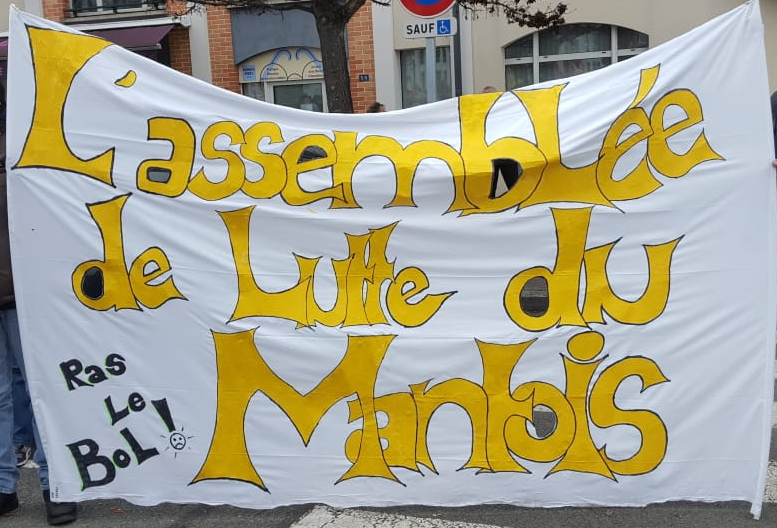 SAUF
L'assemblée
de Lutte du
Mantois
Ras
Le
BoL!